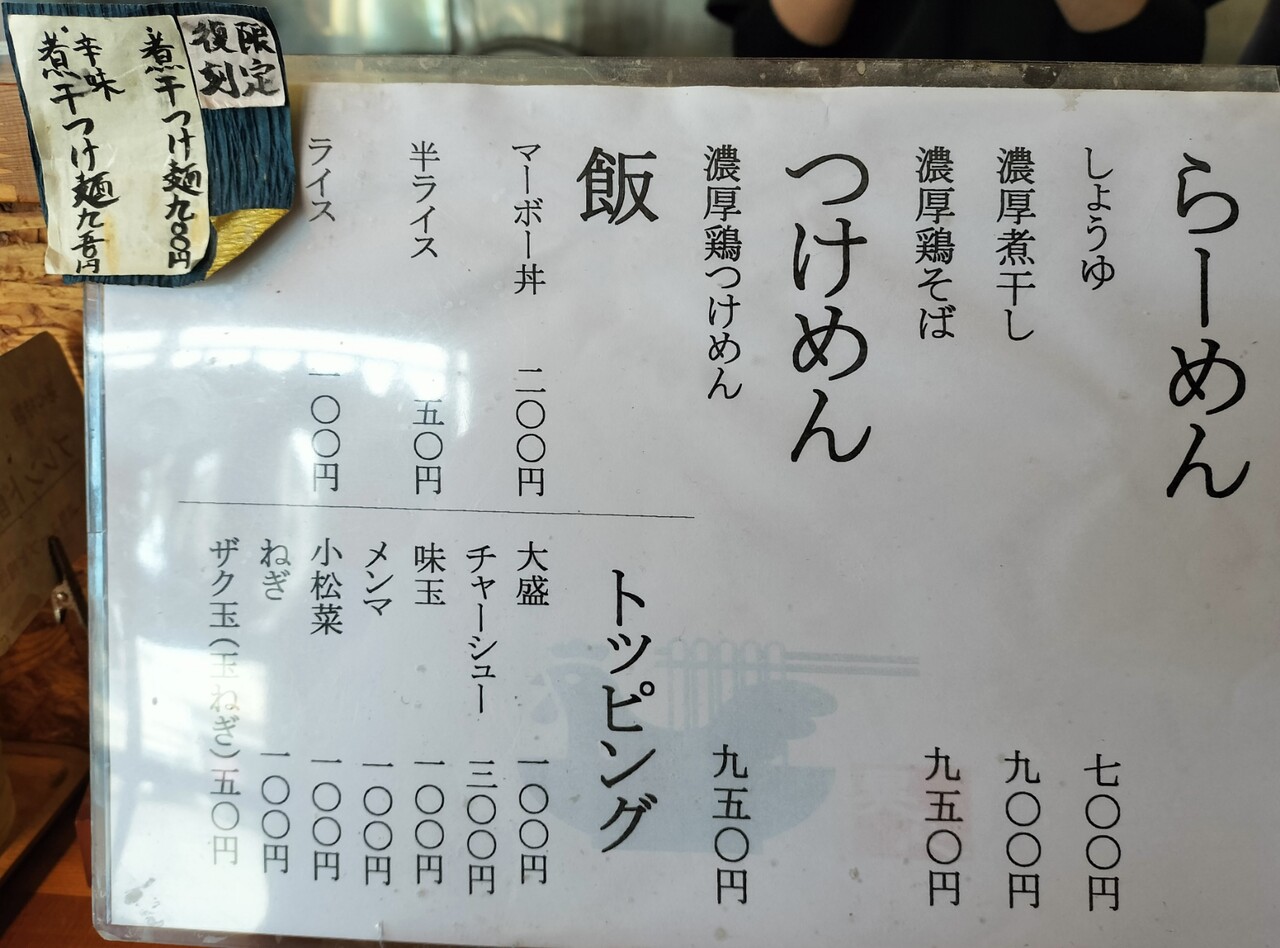 らーめん
しょうゆ 七〇〇円
濃厚煮干し 九〇〇円
濃厚鶏そば 九五〇円
つけめん
濃厚鶏つけめん 九五〇円
飯
マーボー丼 二〇〇円
半ライス 五〇円
ライス 一〇〇円
トッピング
大盛 一〇〇円
チャーシュー 三〇〇円
味玉 一〇〇円
メンマ 一〇〇円
小松菜 一〇〇円
ねぎ 一〇〇円
ザク玉(玉ねぎ)五〇円
限定
復刻
煮干つけ麺九〇〇円
辛味
煮干つけ麺九五〇円